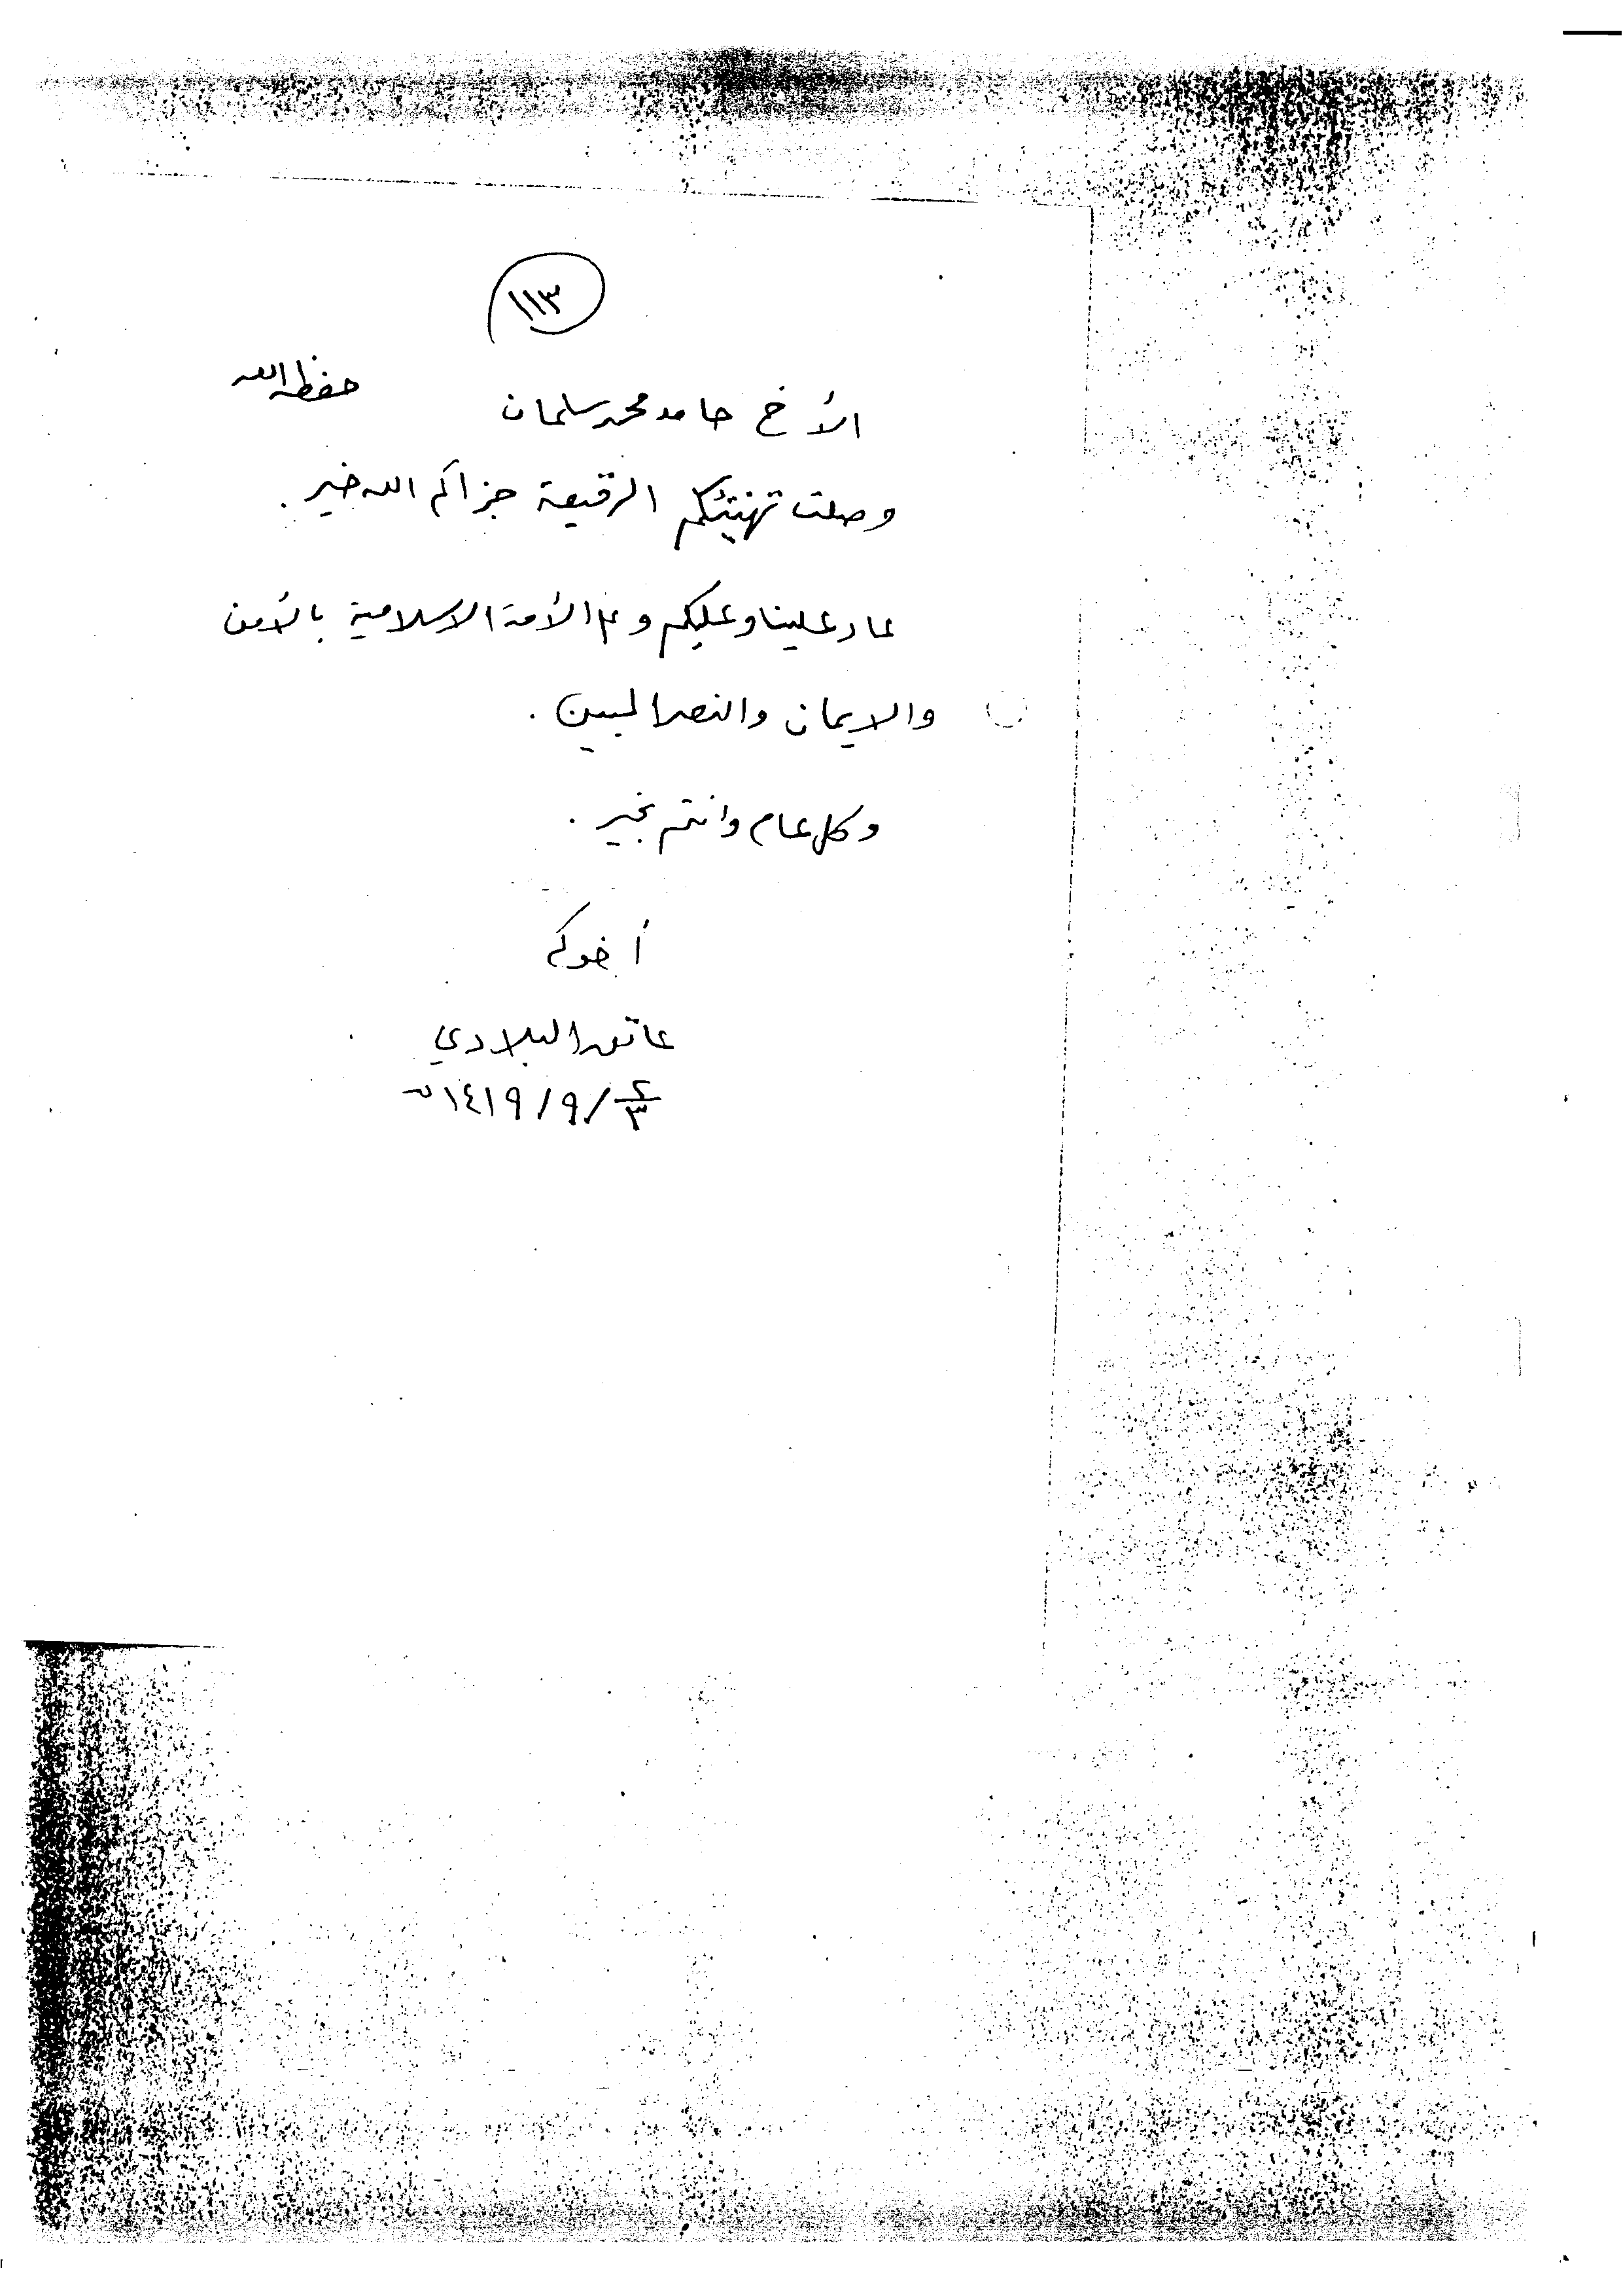 ١١٣
الأخ حامد محمد سلمان حفظه الله
وصلت تهنيئتكم الرقيقة جزاكم الله خير .
عاد علينا وعليكم وعلى الأمة الاسلامية بالأمن
والايمان والنصر المبين .
وكل عام وانتم بخير .
أخوكم
عاتق البلادي
١٤١٩/٩/